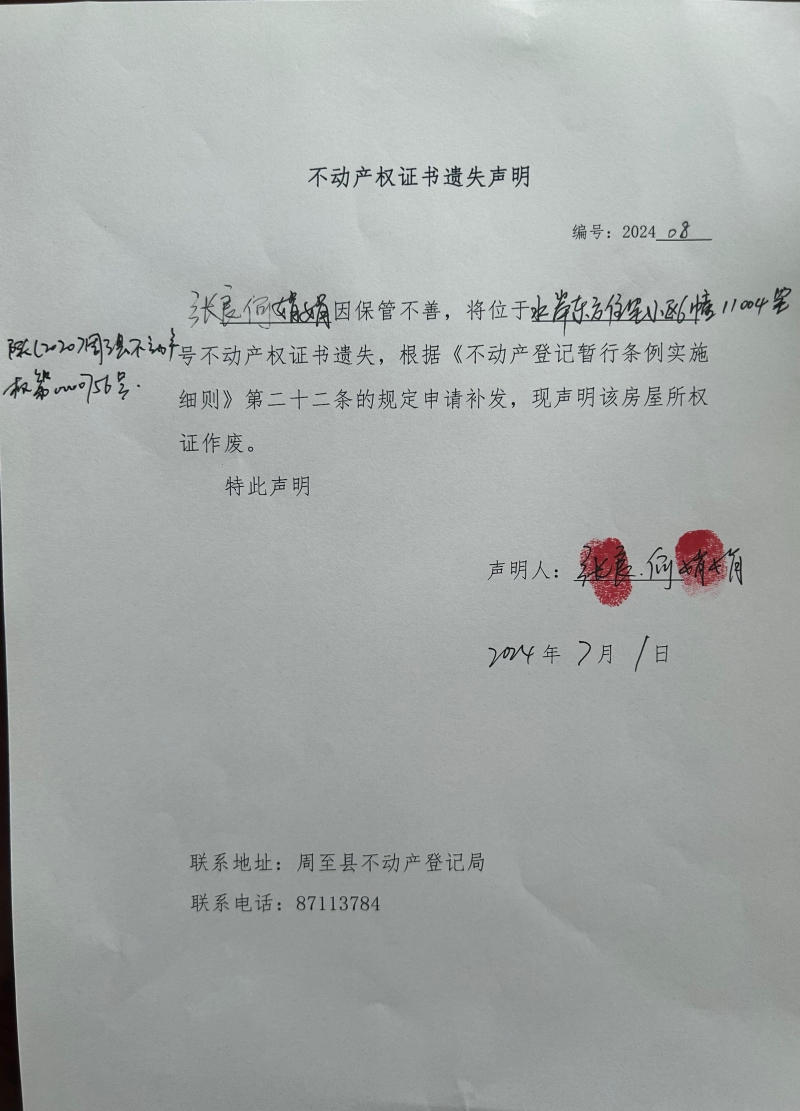 不动产权证书遗失声明
编号：2024 08
张良何娟娟因保管不善，将位于水岸东方住宅小区6幢11004室
陕(2020)周至县不动产
号不动产权证书遗失，根据《不动产登记暂行条例实施
权第0000756号.
细则》第二十二条的规定申请补发，现声明该房屋所权
证作废。
特此声明
声明人：张良.何娟娟
2024年7月1日
联系地址：周至县不动产登记局
联系电话：87113784